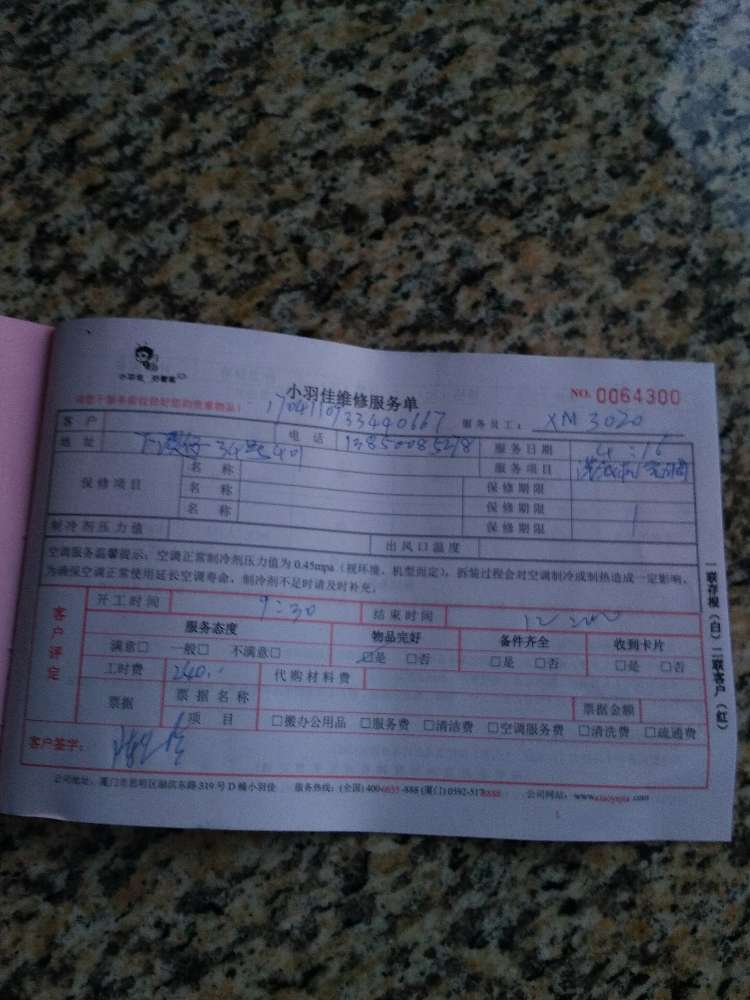 小羽佳 好管家
小羽佳维修服务单
NO. 0064300
请您于服务前收拾好您的贵重物品!
1704110733490667
服务员工: XM 3020
客户
电话 13850085278
服务日期 4:16
地址 34号401
服务项目
保修项目
名称
保修期限
名称
保修期限
名称
保修期限
制冷剂压力值
出风口温度
空调服务温馨提示:空调正常制冷剂压力值为0.45mpa(视环境、机型而定),拆输过程会对空调制冷或制热造成一定影响,
为确保空调正常使用延长空调寿命,制冷剂不足时请及时补充。
客户评定
开工时间 9:30
结束时间 12:00
服务态度
物品完好
备件齐全
收到卡片
满意□ 一般□ 不满意□
☑是 □否
□是 □否
□是 □否
工时费 240
代购材料费
票据
票据名称
票据金额
项目 □搬办公用品 □服务费 □清洁费 □空调服务费 □清洗费 □疏通费
客户签字:
公司地址:厦门市思明区湖滨东路319号D幢小羽佳 服务热线:(全国)400-6655-888 (厦门)0592-5178888 公司网站:www.xiaoyujia.com
一联存根(白)二联客户(红)